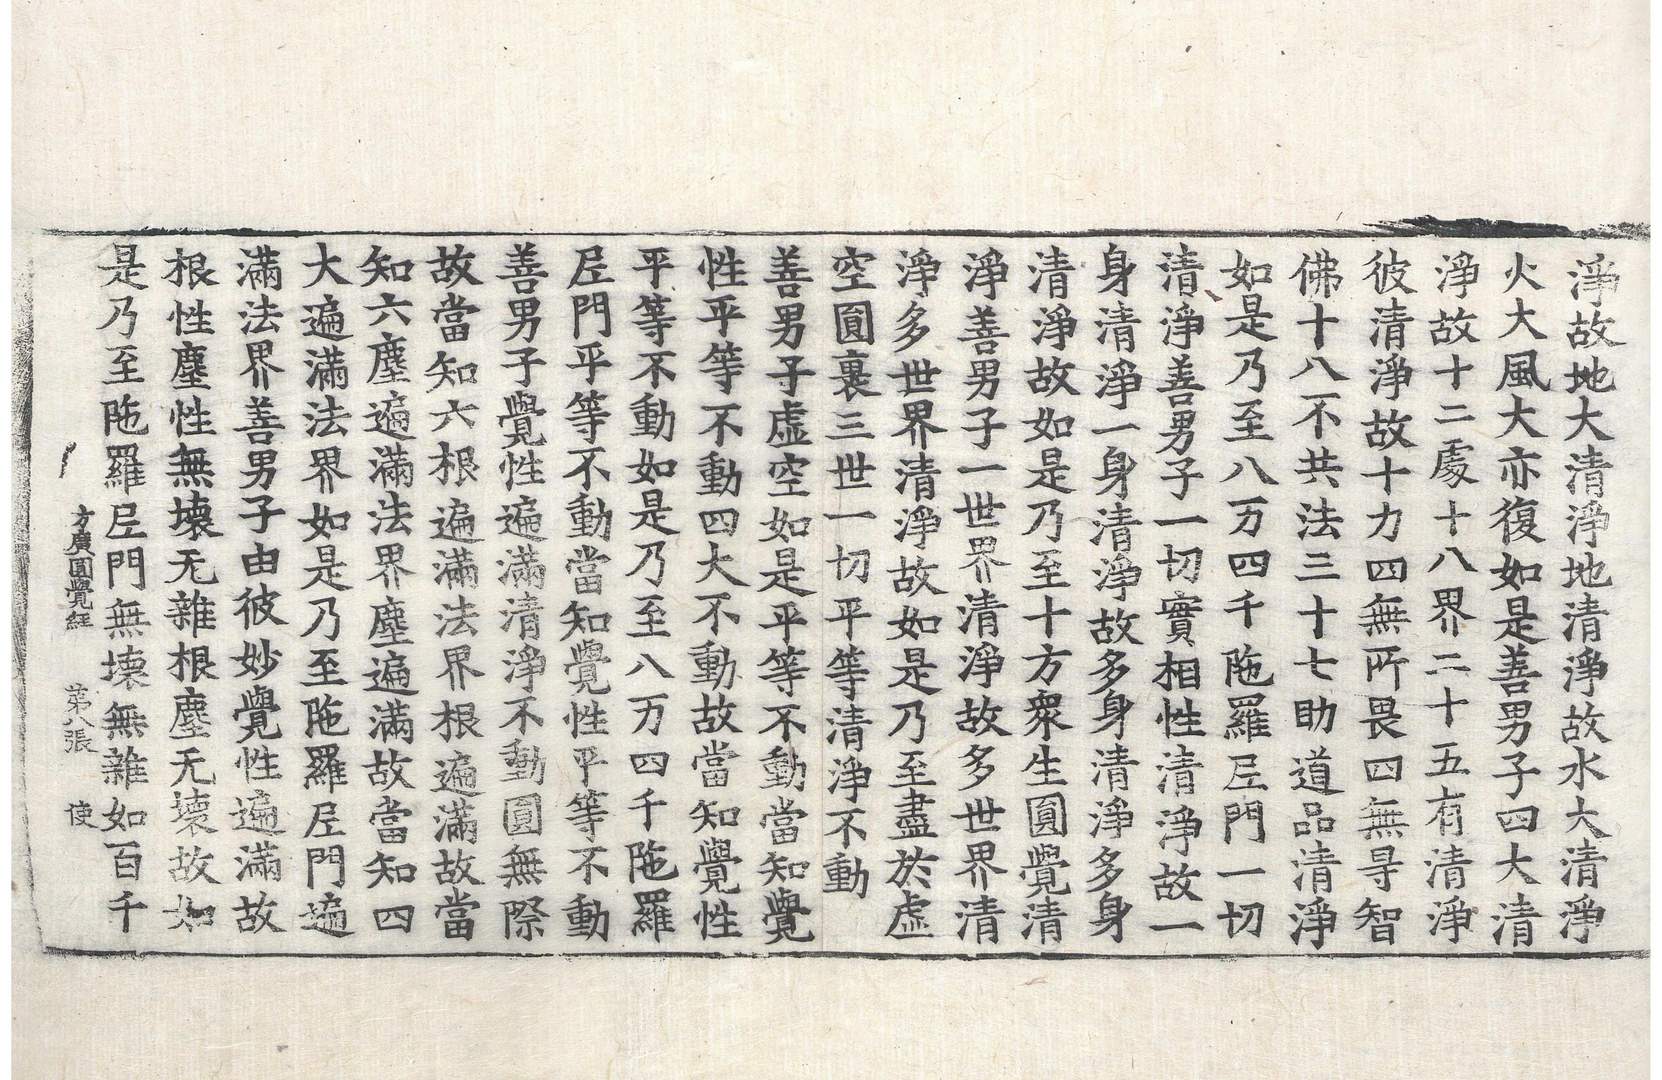 淨故地大清淨地清淨故水大清淨
火大風大亦復如是善男子四大清
淨故十二處十八界二十五有清淨
彼清淨故十力四無所畏四無㝵智
佛十八不共法三十七助道品清淨
如是乃至八万四千陁羅尼門一切
清淨善男子一切實相性清淨故一
身清淨一身清淨故多身清淨多身
清淨故如是乃至十方衆生圓覺清
淨善男子一世界清淨故多世界清
淨多世界清淨故如是乃至盡於虛
空圓裹三世一切平等清淨不動
善男子虛空如是平等不動當知覺
性平等不動四大不動故當知覺性
平等不動如是乃至八万四千陁羅
尼門平等不動當知覺性平等不動
善男子覺性遍滿清淨不動圓無際
故當知六根遍滿法界根遍滿故當
知六塵遍滿法界塵遍滿故當知四
大遍滿法界如是乃至陁羅尼門遍
滿法界善男子由彼妙覺性遍滿故
根性塵性無壞无雜根塵无壞故如
是乃至陁羅尼門無壞無雜如百千
方廣圓覺經 第八張 使